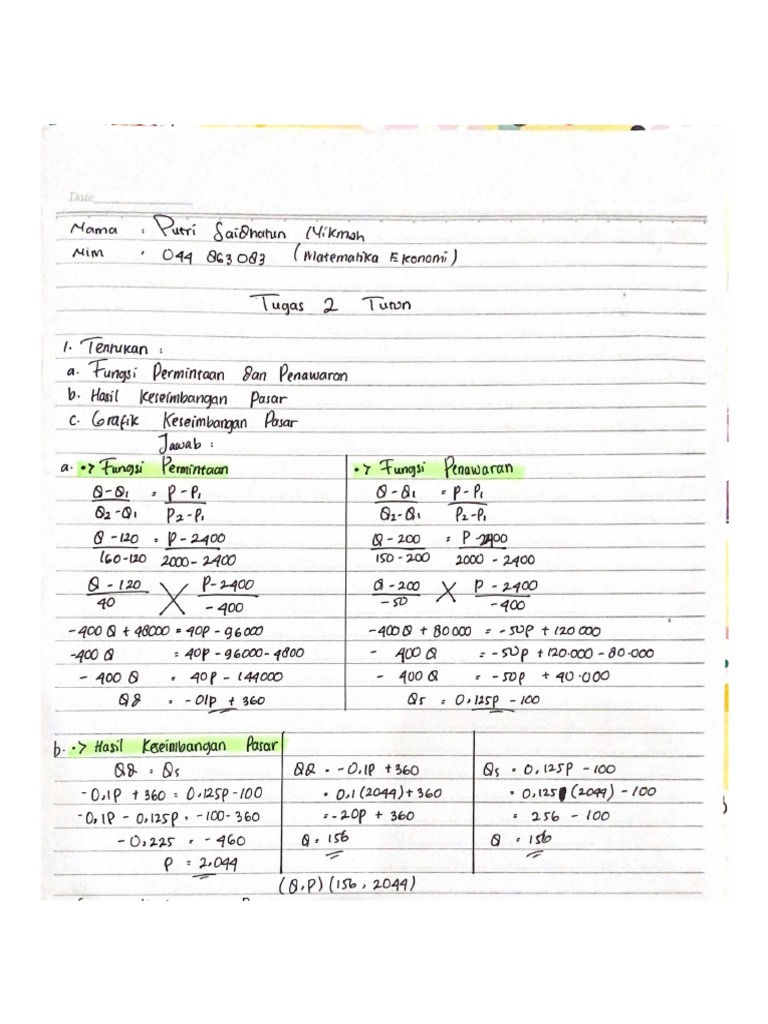 Date
Nama : Putri Saidhatun Hikmah
Nim : 044 863 083 (Matematika Ekonomi)
Tugas 2 Tuton
1. Tentukan :
a. Fungsi Permintaan dan Penawaran
b. Hasil Keseimbangan Pasar
c. Grafik Keseimbangan Pasar
Jawab :
a. •> Fungsi Permintaan
Q-Q1 = P-P1
Q2-Q1 P2-P1
Q-120 = P-2400
160-120 2000-2400
Q-120 P-2400
40 -400
-400Q + 48000 = 40P - 96000
-400Q = 40P - 96000 - 4800
- 400Q = 40P - 144000
Qd = -01P + 360
•> Fungsi Penawaran
Q-Q1 = P-P1
Q2-Q1 P2-P1
Q-200 = P-2400
150-200 2000-2400
Q-200 P-2400
-50 -400
-400Q + 80000 = -50P + 120000
- 400Q = -50P + 120.000 - 80.000
- 400Q = -50P + 40.000
Qs = 0,125P - 100
b. •> Hasil Keseimbangan Pasar
Qd = Qs
-0,1P + 360 = 0,125P - 100
-0,1P - 0,125P = -100 - 360
-0,225 = -460
P = 2.044
Qd = -0,1P + 360
= 0,1 (2044) + 360
= -20P + 360
Q = 156
Qs = 0,125P - 100
= 0,125 (2044) - 100
= 256 - 100
Q = 156
(Q,P) (156, 2044)